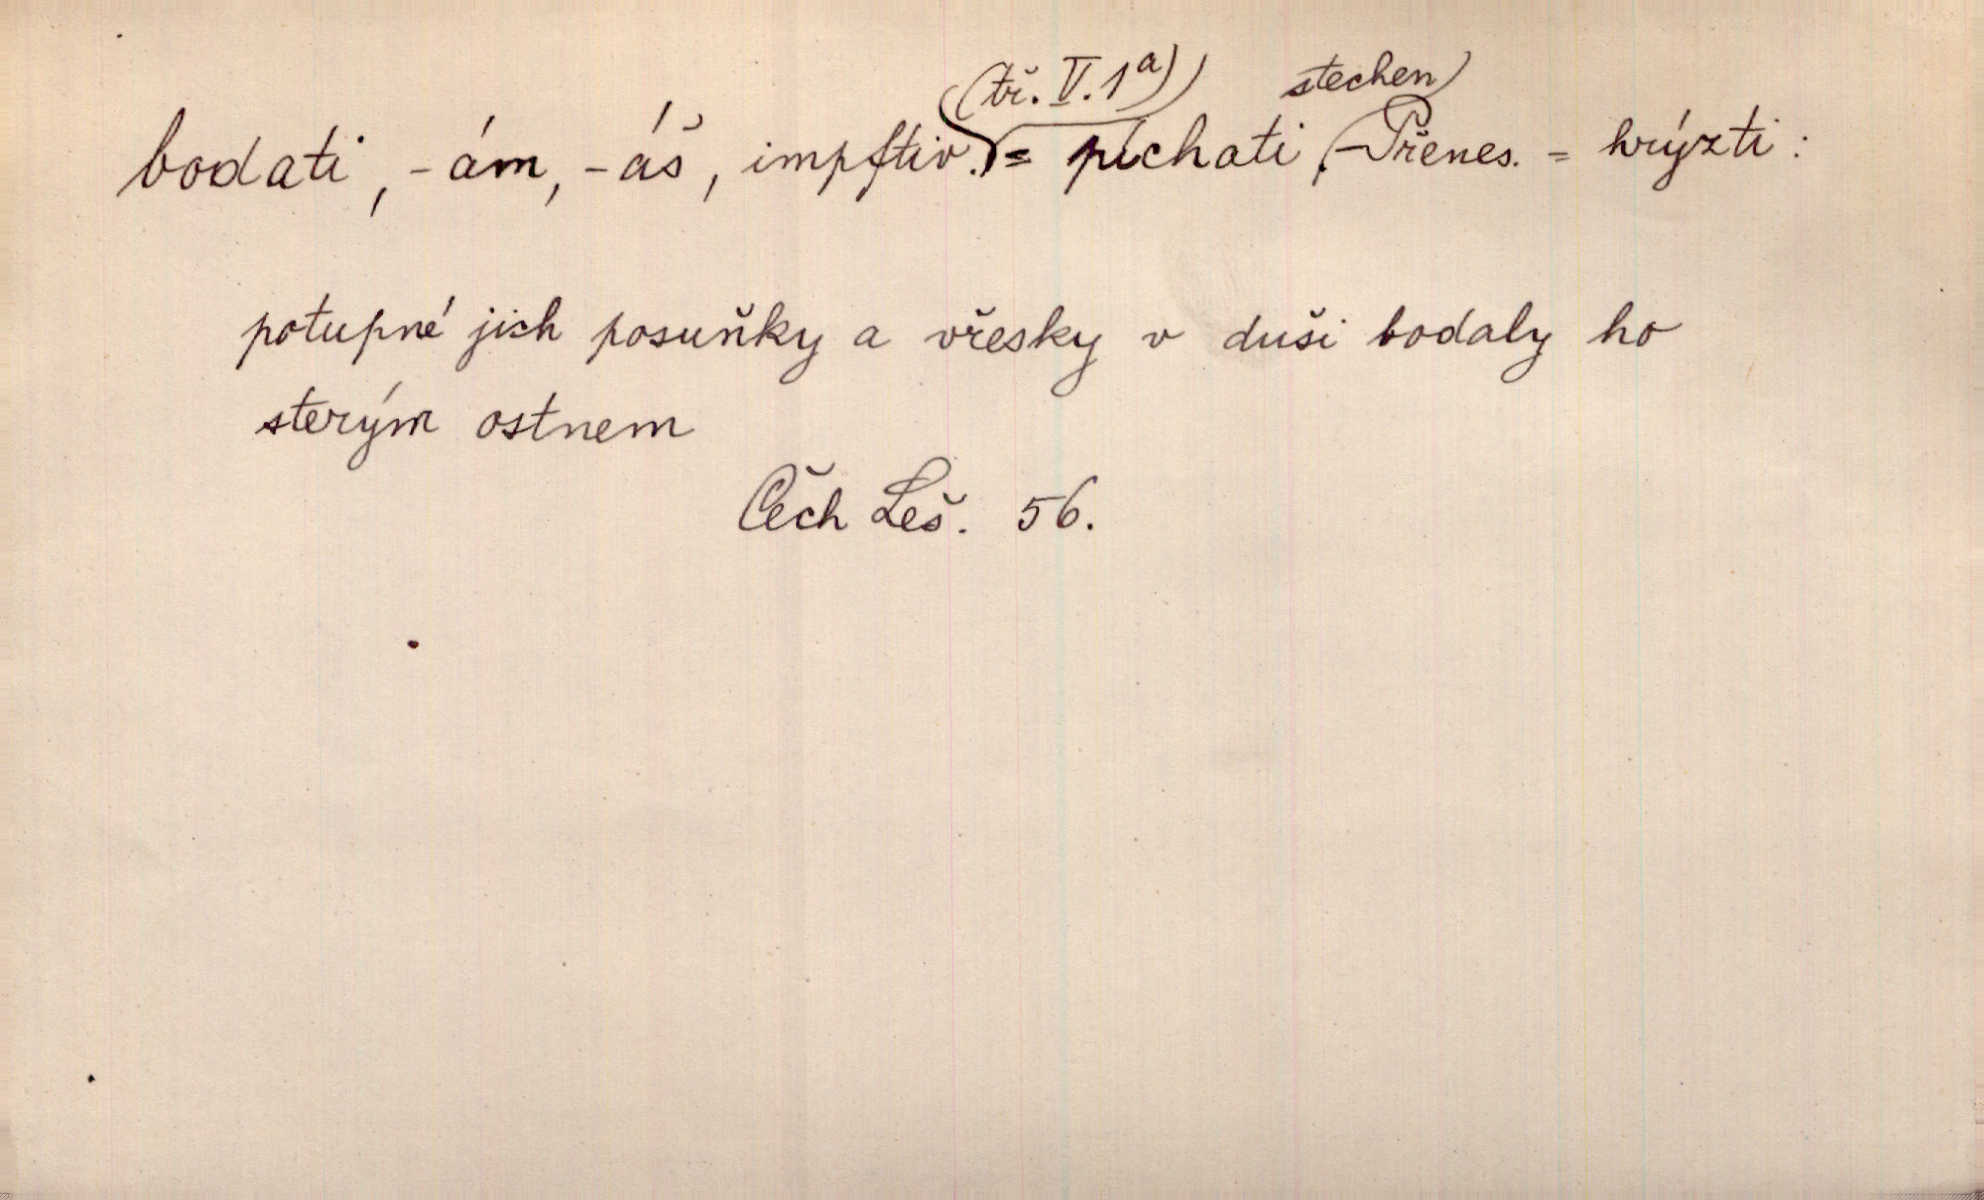 (tř. V. 1a) stechen)
bodati, -ám, -áš, impftiv. = píchati, (Přenes. = hrýzti:
potupné jich posuňky a vřesky v duši bodaly ho
sterým ostnem
Čěch Leš. 56.